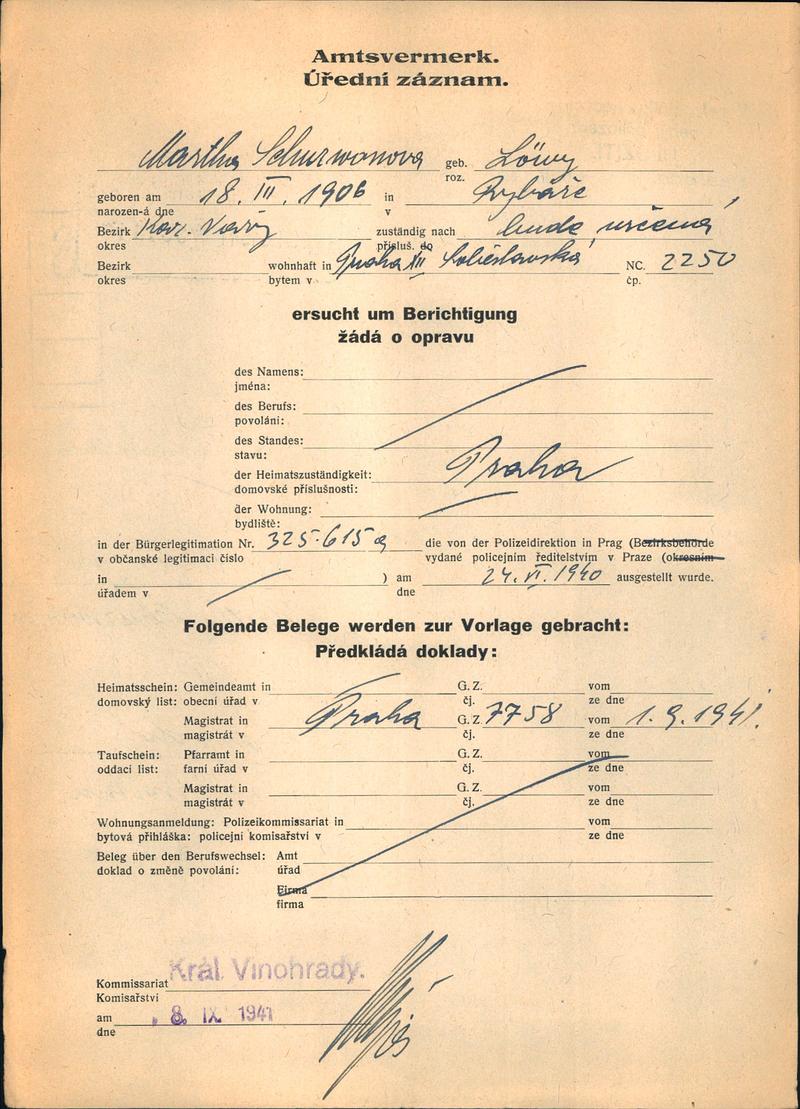 Amtsvermerk.
Úřední záznam.
Martha Schurmanova geb. Löwy
roz.
geboren am 18. III. 1906 in Rybáře
narozen-á dne v
Bezirk Kar. Vary zuständig nach bude určená
okres přísluš. do
Bezirk wohnhaft in Praha XII Soběslavská NC. 2250
okres bytem v čp.
ersucht um Berichtigung
žádá o opravu
des Namens:
jména:
des Berufs:
povolání:
des Standes:
stavu:
der Heimatszuständigkeit: Praha
domovské příslušnosti:
der Wohnung:
bydliště:
in der Bürgerlegitimation Nr. 325.615 die von der Polizeidirektion in Prag (Bezirksbehörde
v občanské legitimaci číslo vydané policejním ředitelstvím v Praze (okresním
in ) am 24. VI. 1940 ausgestellt wurde.
úřadem v dne
Folgende Belege werden zur Vorlage gebracht:
Předkládá doklady:
Heimatsschein: Gemeindeamt in G. Z. vom
domovský list: obecní úřad v čj. ze dne
Magistrat in Praha G. Z. 7758 vom 1. 9. 1941.
magistrát v čj. ze dne
Taufschein: Pfarramt in G. Z. vom
oddací list: farní úřad v čj. ze dne
Magistrat in G. Z. vom
magistrát v čj. ze dne
Wohnungsanmeldung: Polizeikommissariat in vom
bytová přihláška: policejní komisařství v ze dne
Beleg über den Berufswechsel: Amt
doklad o změně povolání: úřad
Firma
firma
Kommissariat Král. Vinohrady.
Komisařství
am 8. IX. 1941
dne